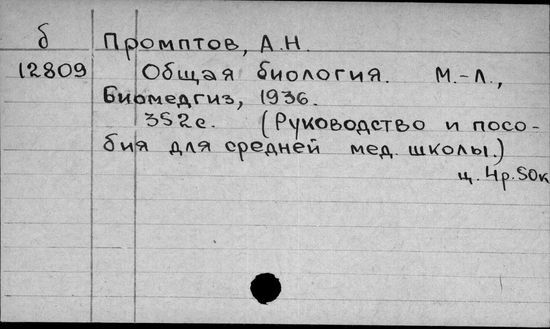 б Промптов, А.Н.
12809 Общая биология. М.-Л.,
Биомедгиз, 1936.
352с. (Руководство и посо-
бия для средней мед. школы.)
ц. 4р.50к